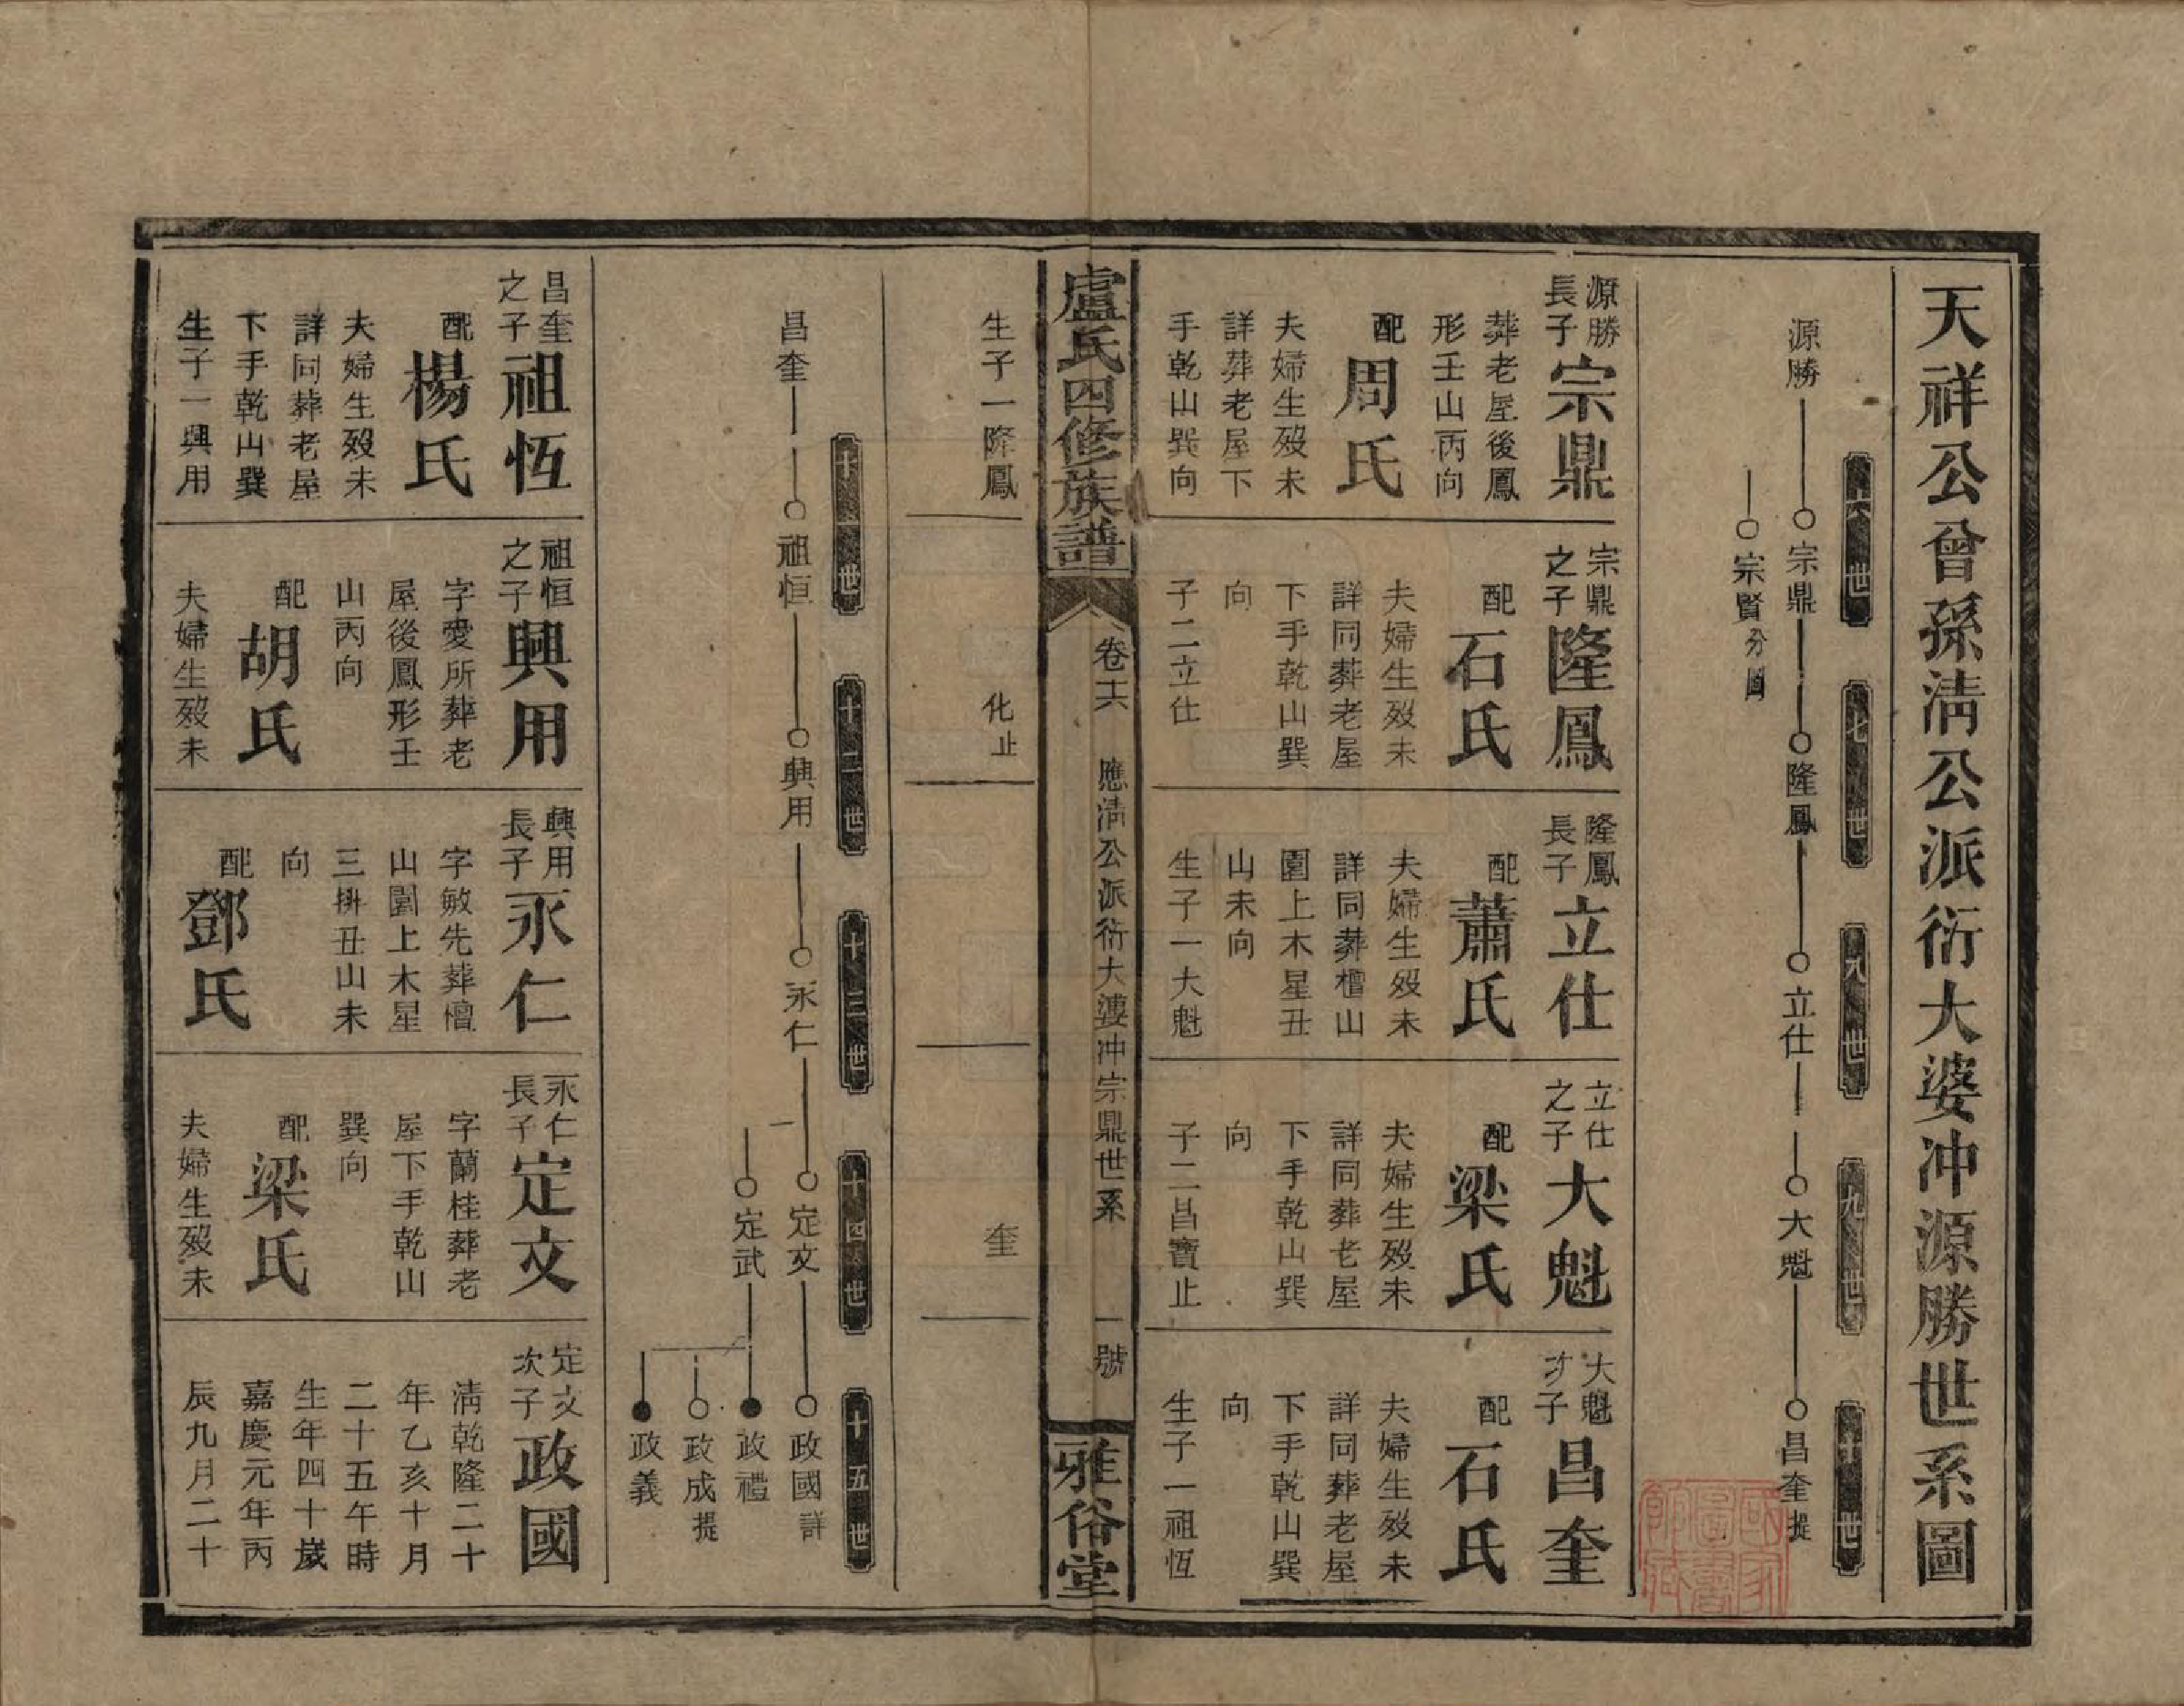 天祥公曾孫淸公派衍大婆冲源勝世系圖
六世
七世
八世
九世
十世
源勝
宗鼎
隆鳳
立仕
大魁
昌奎提
宗賢分圖
源勝
長子
宗鼎
葬老屋後鳳
形壬山丙向
配
周氏
夫婦生歿未
詳葬老屋下
手乾山巽向
生子一隆鳳
宗鼎
之子
隆鳳
配
石氏
夫婦生歿未
詳同葬老屋
下手乾山巽
向
子二立仕
化止
隆鳳
長子
立仕
配
蕭氏
夫婦生歿未
詳同葬檀山
園上木星丑
山未向
生子一大魁
立仕
之子
大魁
配
梁氏
夫婦生歿未
詳同葬老屋
下手乾山巽
向
子二昌寶止
奎
大魁
次子
昌奎
配
石氏
夫婦生歿未
詳同葬老屋
下手乾山巽
向
生子一祖恆
盧氏四修族譜
卷十六
應淸公派衍大婆冲宗鼎世系
一號
雅俗堂
十一世
十二世
十三世
十四世
十五世
昌奎
祖恒
興用
永仁
定文
政國詳
定武
政禮
政成提
政義
昌奎
之子
祖恆
配
楊氏
夫婦生歿未
詳同葬老屋
下手乾山巽
生子一興用
祖恒
之子
興用
字愛所葬老
屋後鳳形壬
山丙向
配
胡氏
夫婦生歿未
興用
長子
永仁
字敏先葬檀
山園上木星
三排丑山未
向
配
鄧氏
永仁
長子
定文
字蘭桂葬老
屋下手乾山
巽向
配
梁氏
夫婦生歿未
定文
次子
政國
淸乾隆二十
年乙亥十月
二十五午時
生年四十歲
嘉慶元年丙
辰九月二十